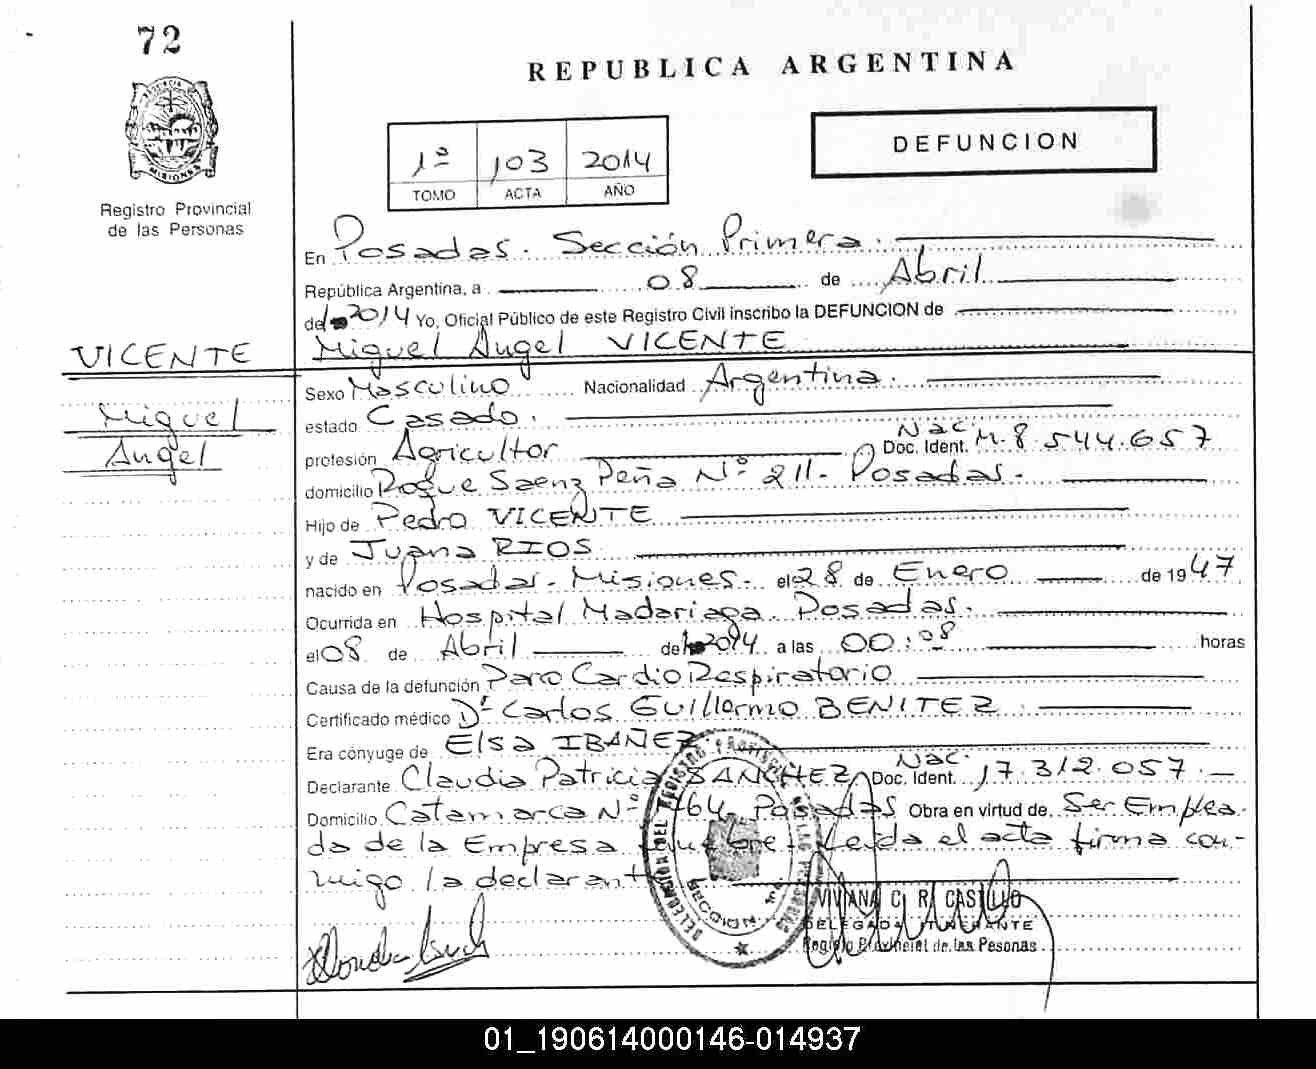 72
REPUBLICA ARGENTINA
PROVINCIA DE MISIONES
Registro Provincial
de las Personas
1º 103 2014
TOMO ACTA AÑO
DEFUNCION
En Posadas. Sección Primera.
República Argentina, a 08 de Abril
de 2014 Yo, Oficial Público de este Registro Civil inscribo la DEFUNCION de
VICENTE
Miguel Angel VICENTE
Miguel
Angel
Sexo Masculino Nacionalidad Argentina.
estado Casado.
profesión Agricultor Nac. Doc. Ident. M. 8.544.657
domicilio Roque Saenz Peña Nº 211 - Posadas.
Hijo de Pedro VICENTE
y de Juana RIOS
nacido en Posadas - Misiones - el 28 de Enero de 1947
Ocurrida en Hospital Madariaga Posadas.
el 08 de Abril de 2014 a las 00:08 horas
Causa de la defunción Paro CardioRespiratorio
Certificado médico Dr Carlos Guillermo BENITEZ
Era cónyuge de Elsa IBAÑEZ.
Declarante Claudia Patricia SANCHEZ Nac. Doc. Ident. 17.312.057.
Domicilio Catamarca Nº 764 Posadas Obra en virtud de Ser Emplea-
da de la Empresa fúnebre - Leida el acta firma con-
migo la declarante
DELEGACION DEL REGISTRO PROVINCIAL DE LAS PERSONAS
SECCION 1ª
VIVIANA C. R. CASTILLO
DELEGADA ITINERANTE
Registro Provincial de las Pesonas
01_190614000146-014937